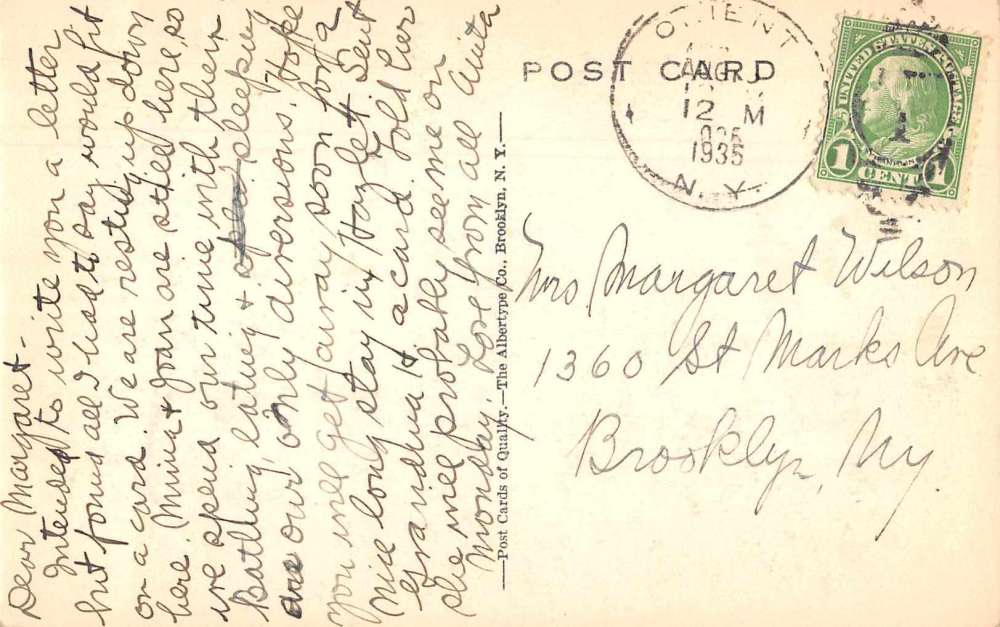 Dear Margaret -
Intended to write you a letter
but found all I had to say would fit
on a card. We are resting up down
here. Minna & Joan are still here, so
we spend our time with them
Bathing, eating & sleeping
are our only diversions. Hope
you will get away soon for a
nice long stay in Hazlet. Sent
Grandma H a card. Told her
she will probably see me on
Monday. Love from all Anita
—Post Cards of Quality.—The Albertype Co., Brooklyn, N. Y.—
POST CARD
ORIENT
AUG
12 M
1935
N.Y.
UNITED STATES POSTAGE
FRANKLIN
1 CENT 1
1
Mrs Margaret Wilson
1360 St Marks Ave
Brooklyn, NY